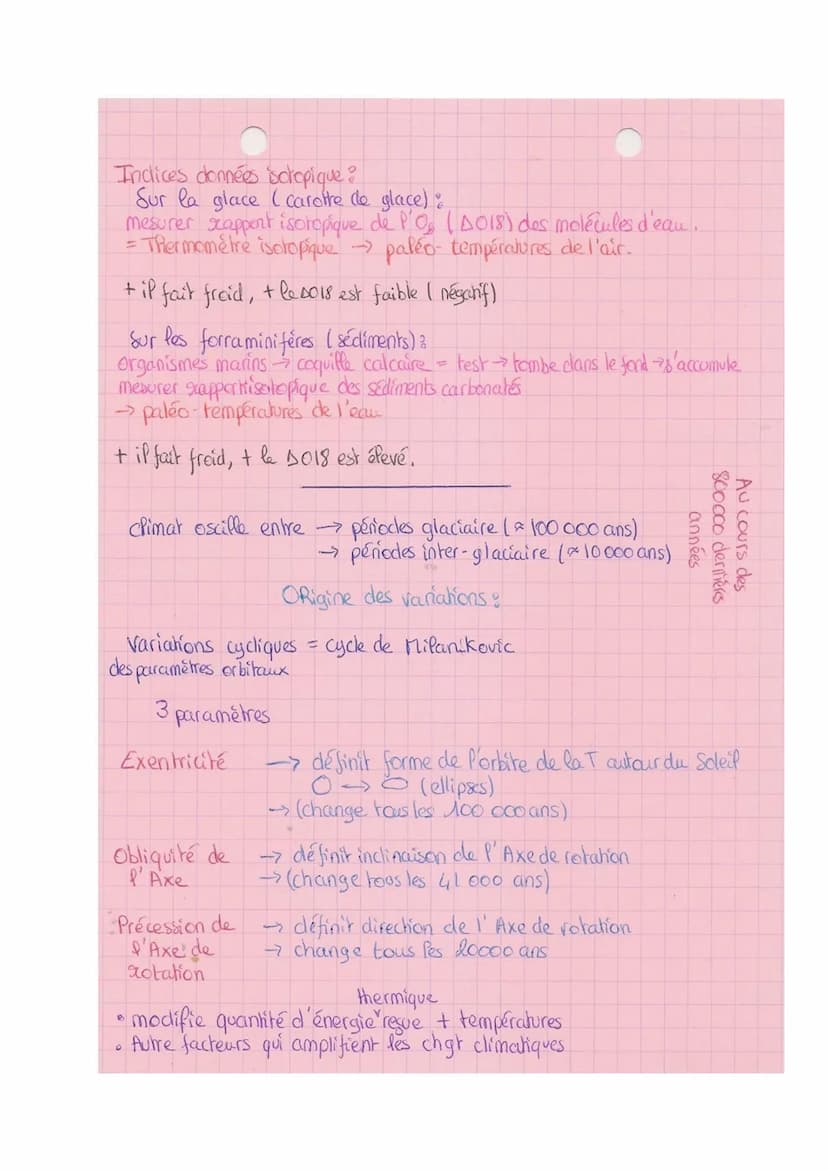 Indices données isotopique :
Sur la glace (carotte de glace) :
mesurer rapport isotopique de l'O₂ (Δ018) des molécules d'eau.
= Thermomètre isotopique → paléo-températures de l'air.
+ il fait froid, + le Δ018 est faible (négatif)
Sur les forraminifères (sédiments) :
organismes marins → coquille calcaire = test → tombe dans le fond → s'accumule
mesurer rapport isotopique des sédiments carbonatés
→ paléo-températures de l'eau
+ il fait froid, + le Δ018 est élevé.
climat oscille entre → périodes glaciaire (≈ 100 000 ans)
→ périodes inter-glaciaire (≈ 10 000 ans)
Au cours des
800000 dernières
années
ORigine des variations :
Variations cycliques = cycle de Milanikovic
des paramètres orbitaux
3 paramètres
Exentricité → définit forme de l'orbite de la T autour du Soleil
→ (ellipses)
→ (change tous les 100 000 ans)
Obliquité de → définit inclinaison de l'Axe de rotation
l'Axe → (change tous les 41 000 ans)
Précession de → définit direction de l'Axe de rotation
l'Axe de → change tous les 20000 ans
rotation
thermique
• modifie quantité d'énergie reçue + températures
• Autre facteurs qui amplifient les chgt climatiques